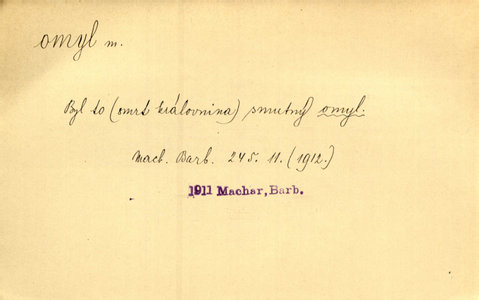 omyl m.
Byl to (smrt královnina) smutný omyl.
Mach. Barb. 245. 11. (1912.)
1911 Machar, Barb.